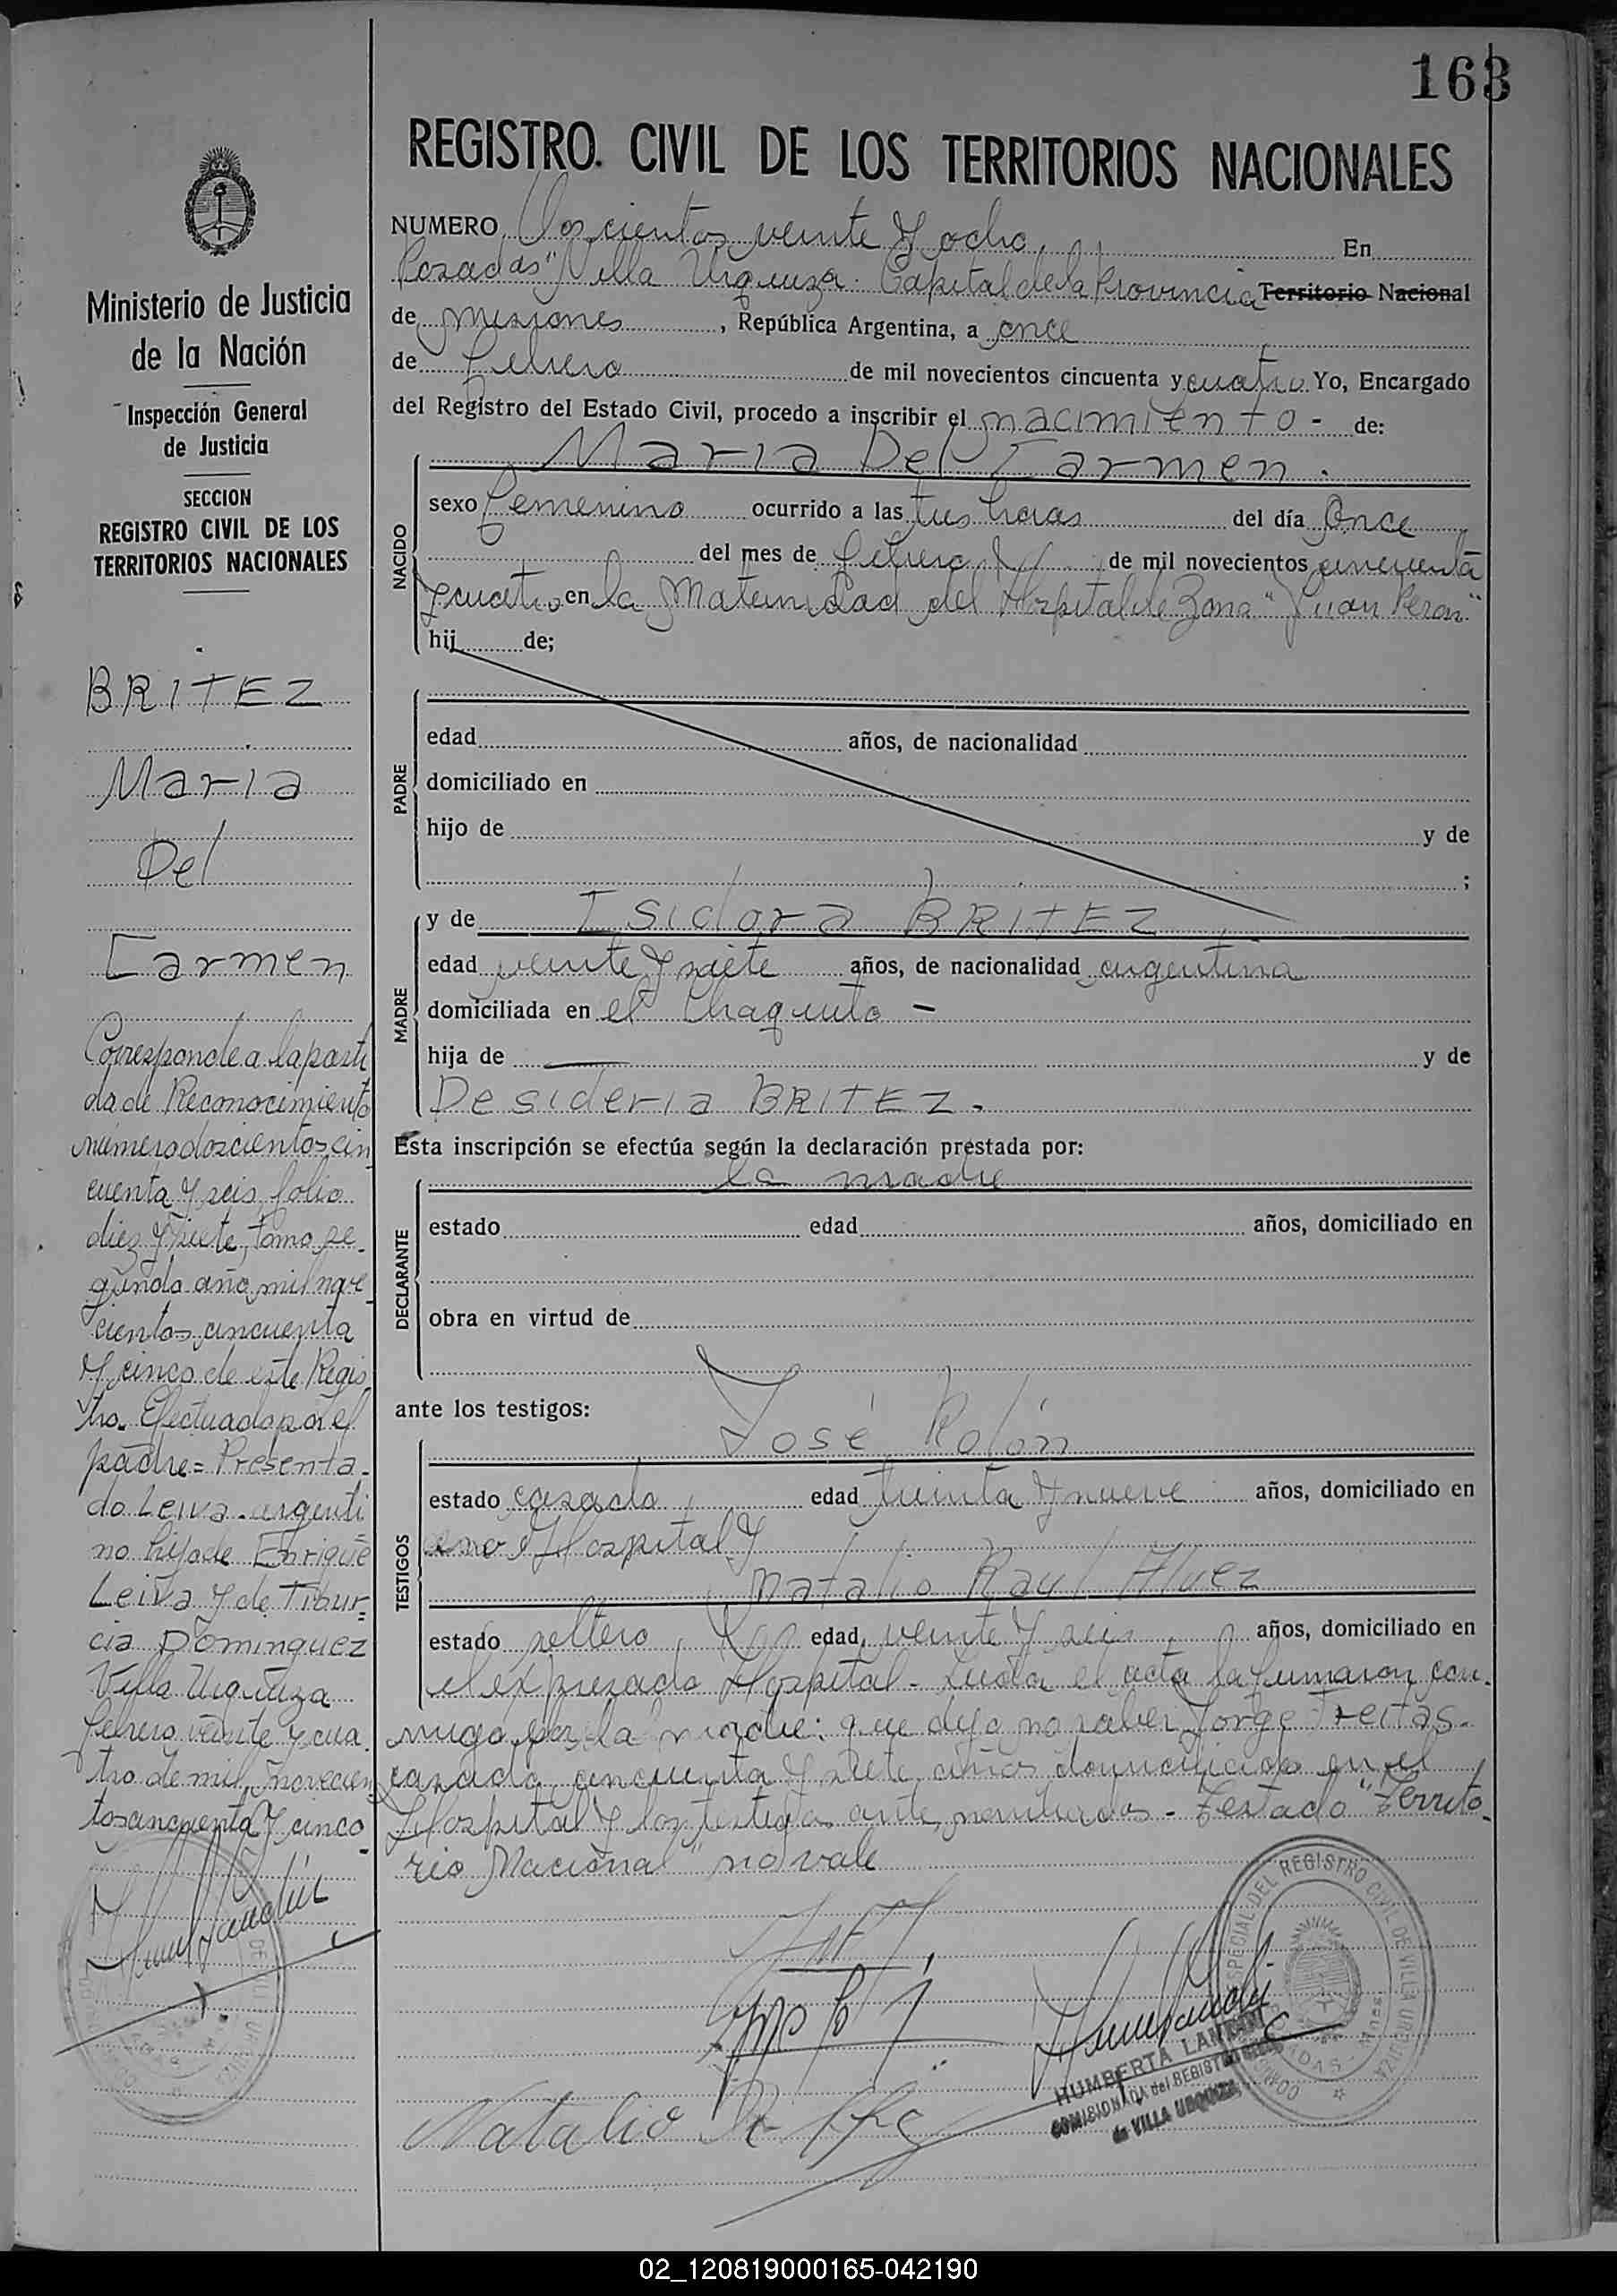 163
REGISTRO CIVIL DE LOS TERRITORIOS NACIONALES
Ministerio de Justicia
de la Nación
Inspección General
de Justicia
SECCION
REGISTRO CIVIL DE LOS
TERRITORIOS NACIONALES
BRITEZ
Maria
Del
Carmen
Corresponde a la parti
da de Reconocimiento
número doscientos cin
cuenta y seis folio
diez y siete, tomo se-
gundo año mil nove-
cientos cincuenta
y cinco de este Regis
tro. Efectuado por el
padre = Presenta-
do Leiva. argenti
no hijo de Enrique
Leiva y de Tibur=
cia Dominguez
Villa Urquiza
febrero veinte y cua
tro de mil novecien
tos cincuenta y cinco
NUMERO Doscientos veinte y ocho. En
Posadas "Villa Urquiza. Capital de la Provincia Territorio Nacional
de misiones, República Argentina, a once
de febrero de mil novecientos cincuenta y cuatro Yo, Encargado
del Registro del Estado Civil, procedo a inscribir el nacimiento - de:
Maria Del Carmen.
NACIDO
sexo femenino ocurrido a las tres horas del día once
del mes de febrero de mil novecientos cincuenta
y cuatro en la Maternidad del Hospital de Zona "Juan Peron"
hij de;
PADRE
edad años, de nacionalidad
domiciliado en
hijo de y de
;
MADRE
y de Isidora BRITEZ
edad veinte y siete años, de nacionalidad argentina
domiciliada en el Chaquito -
hija de — y de
Desideria BRITEZ.
Esta inscripción se efectúa según la declaración prestada por:
DECLARANTE
la madre
estado edad años, domiciliado en
obra en virtud de
ante los testigos:
TESTIGOS
José Rolón
estado casado, edad treinta y nueve años, domiciliado en
Hospital y
Natalio Raul Alvez
estado soltero, edad, veinte y seis, años, domiciliado en
el expresado Hospital - Leida el acta la firmaron con-
migo por la madre: que dijo no saber Jorge Freitas.
casado, cincuenta y siete años domiciliado en el
Hospital y los testigos ante nombrados - Testado "Territo-
rio Nacional" no vale
Natalio R.
HUMBERTA
COMISIONADA del REGISTRO CIVIL
de VILLA URQUIZA
ESPECIAL DEL REGISTRO CIVIL DE VILLA URQUIZA
02_120819000165-042190